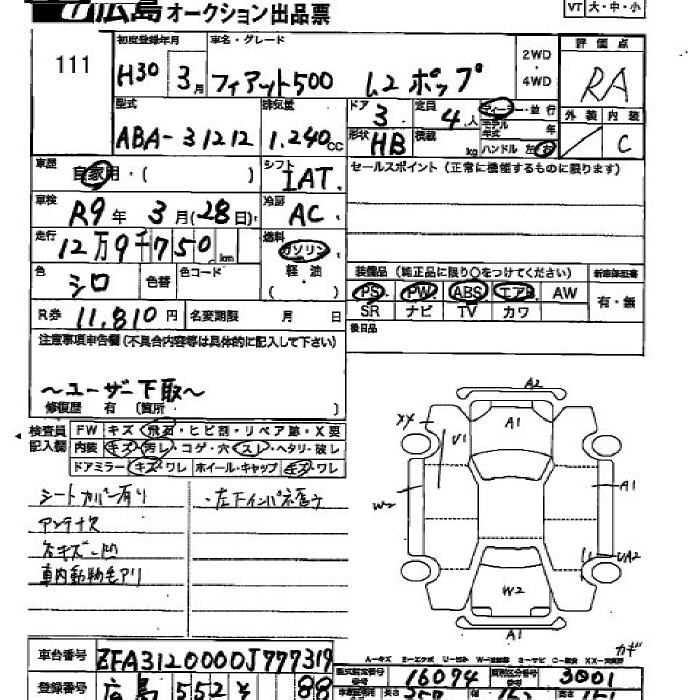 広島 オークション出品票
VT 大・中・小
111
初度登録年月 H30 3月
車名・グレード フィアット500 1.2 ポップ
2WD ・ 4WD
評価点 RA
外装 内装 C
型式 ABA-31212
排気量 1.240cc
ドア 3
定員 4人
ディーラー・並行
モデル年式 年
形状 HB
積載 kg
ハンドル 左 右
車歴 自家用・( )
シフト IAT.
セールスポイント(正常に機能するものに限ります)
車検 R9年 3月(28日)
冷房 AC
走行 12万9千750km
燃料 ガソリン・軽油・( )
色 シロ
色替
色コード
装備品(純正品に限り○をつけてください)
新車保証書 有・無
PS PW ABS エアB AW
SR ナビ TV カワ
R券 11,810円
名変期限 月 日
後日品
注意事項申告欄(不具合内容等は具体的に記入して下さい)
~ユーザー下取~
修復歴 有(箇所 )
検査員記入欄
FW キズ・飛石・ヒビ割・リペア跡・X要
内装 キズ・汚レ・コゲ・穴・スレ・ヘタリ・破レ
ドアミラー キズ・ワレ ホイール・キャップ キズ・ワレ
シートカバー有り
・左下インパネ
アンテナ欠
小キズ凹
車内動物毛アリ
A2
A1
XX
U1
W2
A1
UA2
W2
A1
カギ
車台番号 ZFA3120000J777319
型式指定番号 16094
類別区分番号 3001
登録番号 広島 552 そ 88